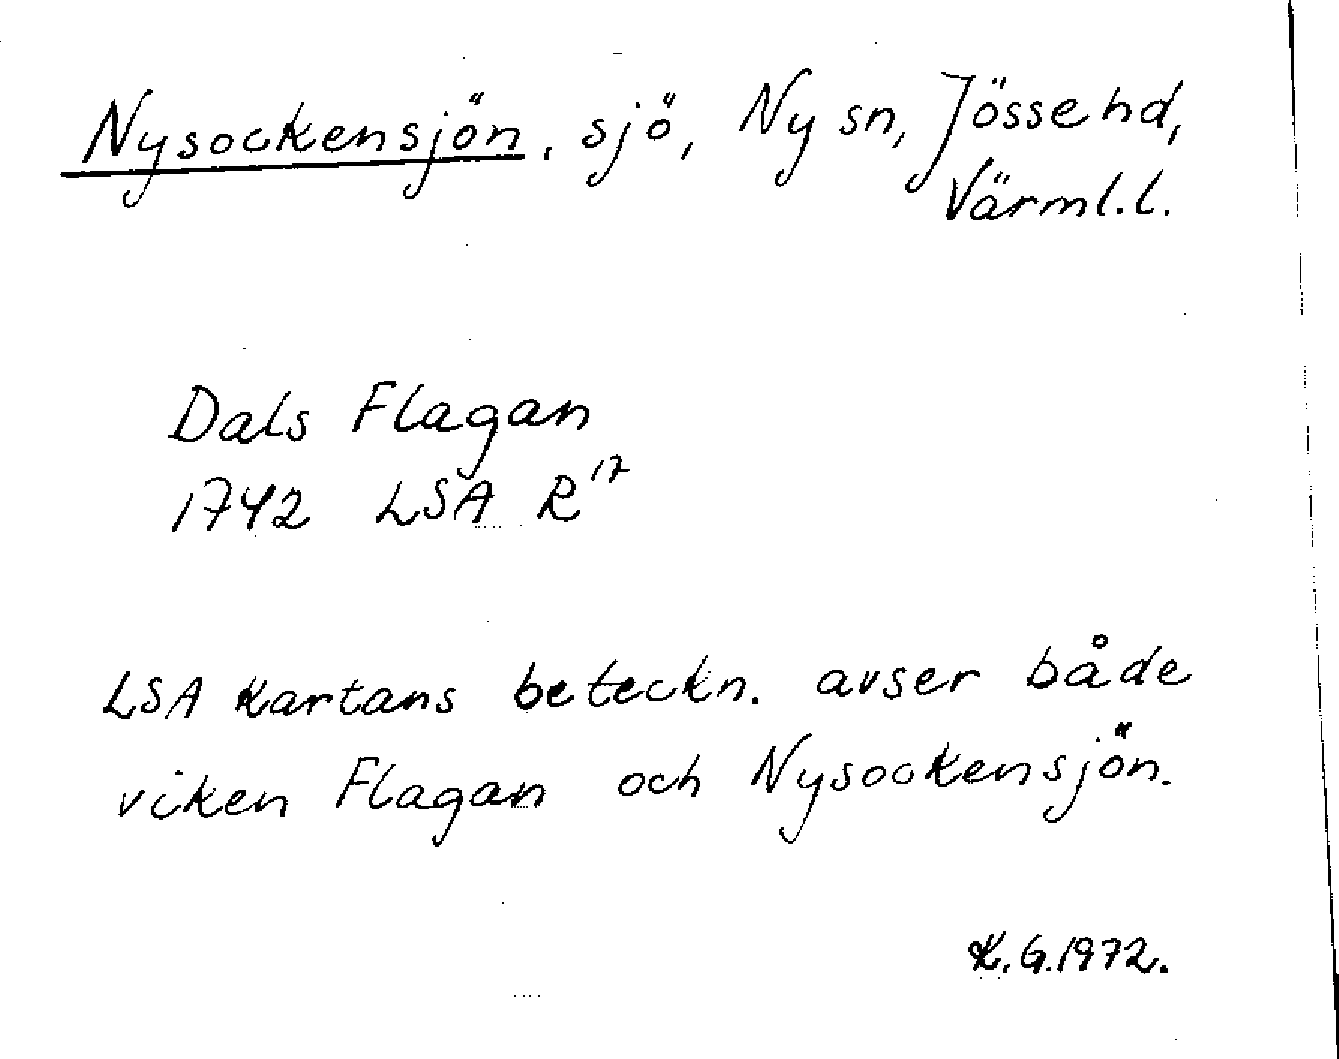 Nysockensjön, sjö, Ny sn, Jösse hd,
Värml.l.
Dals Flagan
1742 LSA R17
LSA kartans beteckn. avser både
viken Flagan och Nysockensjön.
K.G.1972.